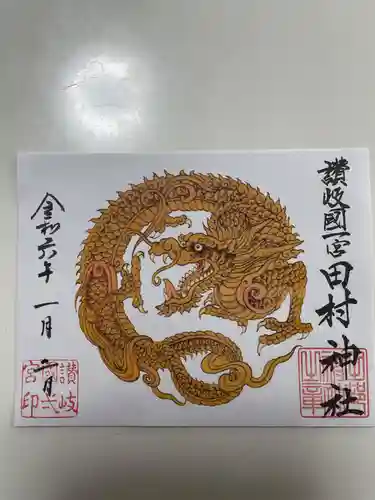 讃岐國一宮田村神社
令和六年一月二日
讃岐
弐
宮印